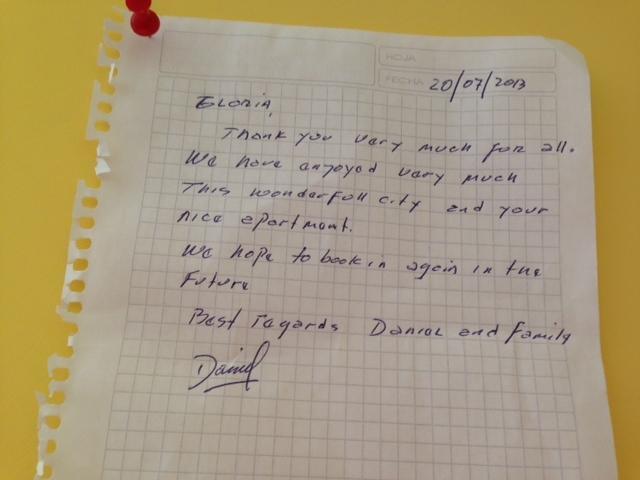 HOJA
FECHA 20/07/2013
GLORIA,
Thank you very much for all.
We have enjoyed very much
This wonderfull city and your
nice apartment.
We hope to book in again in the
Future
Best regards Daniel and family
Daniel